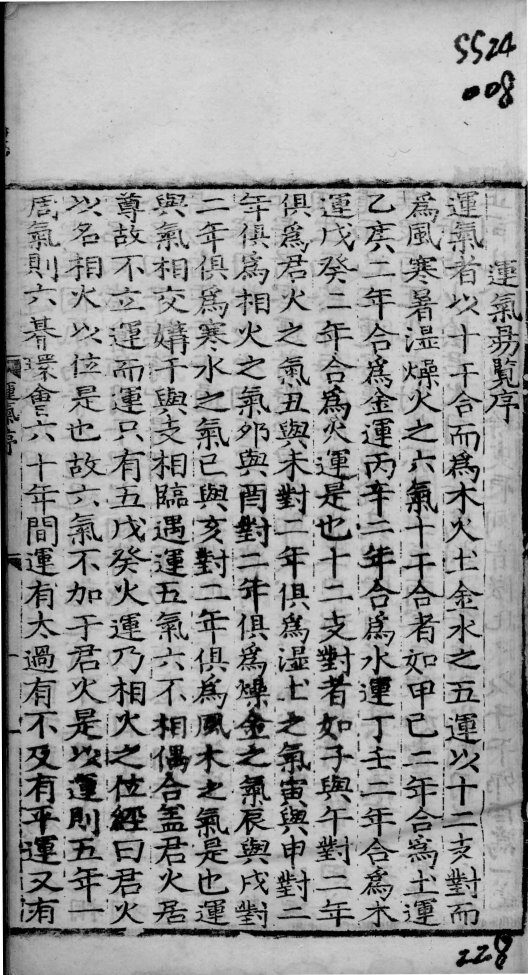 5524
008
運氣易覽序
運氣者以十干合而爲木火土金水之五運以十二支對而
爲風寒暑湿燥火之六氣十干合者如甲己二年合爲土運
乙庚二年合爲金運丙辛二年合爲水運丁壬二年合爲木
運戊癸二年合爲火運是也十二支對者如子與午對二年
俱爲君火之氣丑與未對二年俱爲湿土之氣寅與申對二
年俱爲相火之氣夘與酉對二年俱爲燥金之氣辰與戌對
二年俱爲寒水之氣巳與亥對二年俱爲風木之氣是也運
與氣相交媾干與支相臨遇運五氣六不相偶合盖君火居
尊故不立運而運只有五戊癸火運乃相火之位經曰君火
以名相火以位是也故六氣不加于君火是以運則五年一
周氣則六朞環會六十年間運有太過有不及有平運又有
運氣序
228